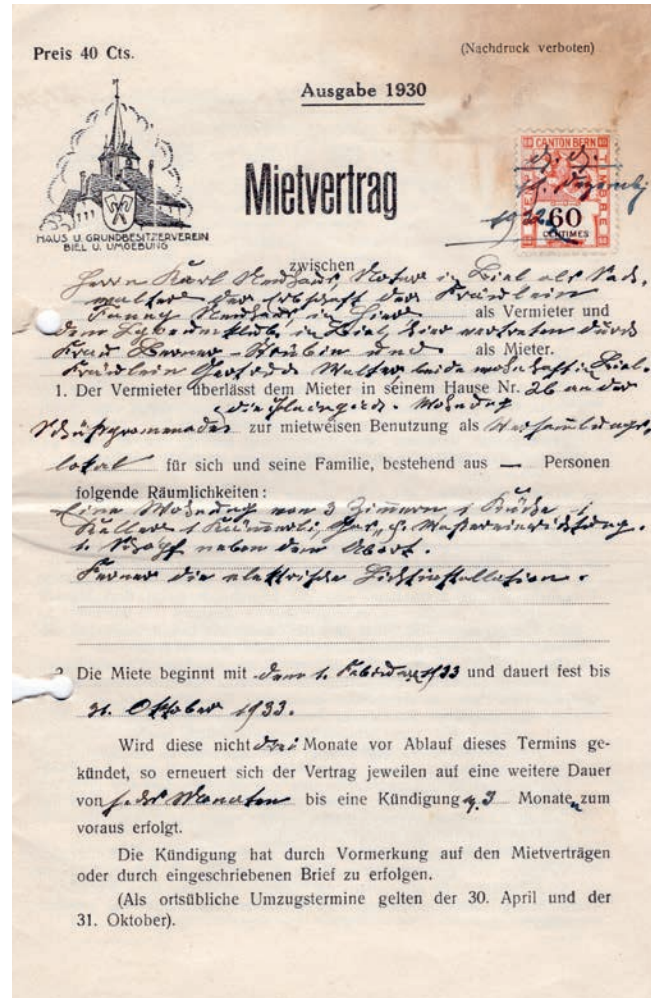 Preis 40 Cts.
(Nachdruck verboten)
Ausgabe 1930
CANTON BERN
60
CENTIMES
HAUS U. GRUNDBESITZERVEREIN
BIEL U. UMGEBUNG
Mietvertrag
zwischen
Herrn Karl Neuhaus, Notar in Biel als
walter der Erbschaft der Fräulein
Fanny Neuhaus in Biel als Vermieter und
dem Lyceumklub in Biel, hier vertreten durch
Frau und als Mieter.
Fräulein Gertrud Walter beide wohnhaft in Biel.
1. Der Vermieter überlässt dem Mieter in seinem Hause Nr. 26 an der
Wohnung
Schüsspromenade zur mietweisen Benutzung als Versammlungs,
lokal für sich und seine Familie, bestehend aus — Personen
folgende Räumlichkeiten:
Eine Wohnung von 3 Zimmern 1 Küche 1
Keller 1 Kämmerli, Gas, & Wassereinrichtung.
1. Schopf neben dem Abort.
Ferner die elektrische Lichtinstallation.
2. Die Miete beginnt mit dem 1. Februar 1933 und dauert fest bis
31. Oktober 1933.
Wird diese nicht drei Monate vor Ablauf dieses Termins ge-
kündet, so erneuert sich der Vertrag jeweilen auf eine weitere Dauer
von sechs Monaten bis eine Kündigung v. 3 Monaten zum
voraus erfolgt.
Die Kündigung hat durch Vormerkung auf den Mietverträgen
oder durch eingeschriebenen Brief zu erfolgen.
(Als ortsübliche Umzugstermine gelten der 30. April und der
31. Oktober).